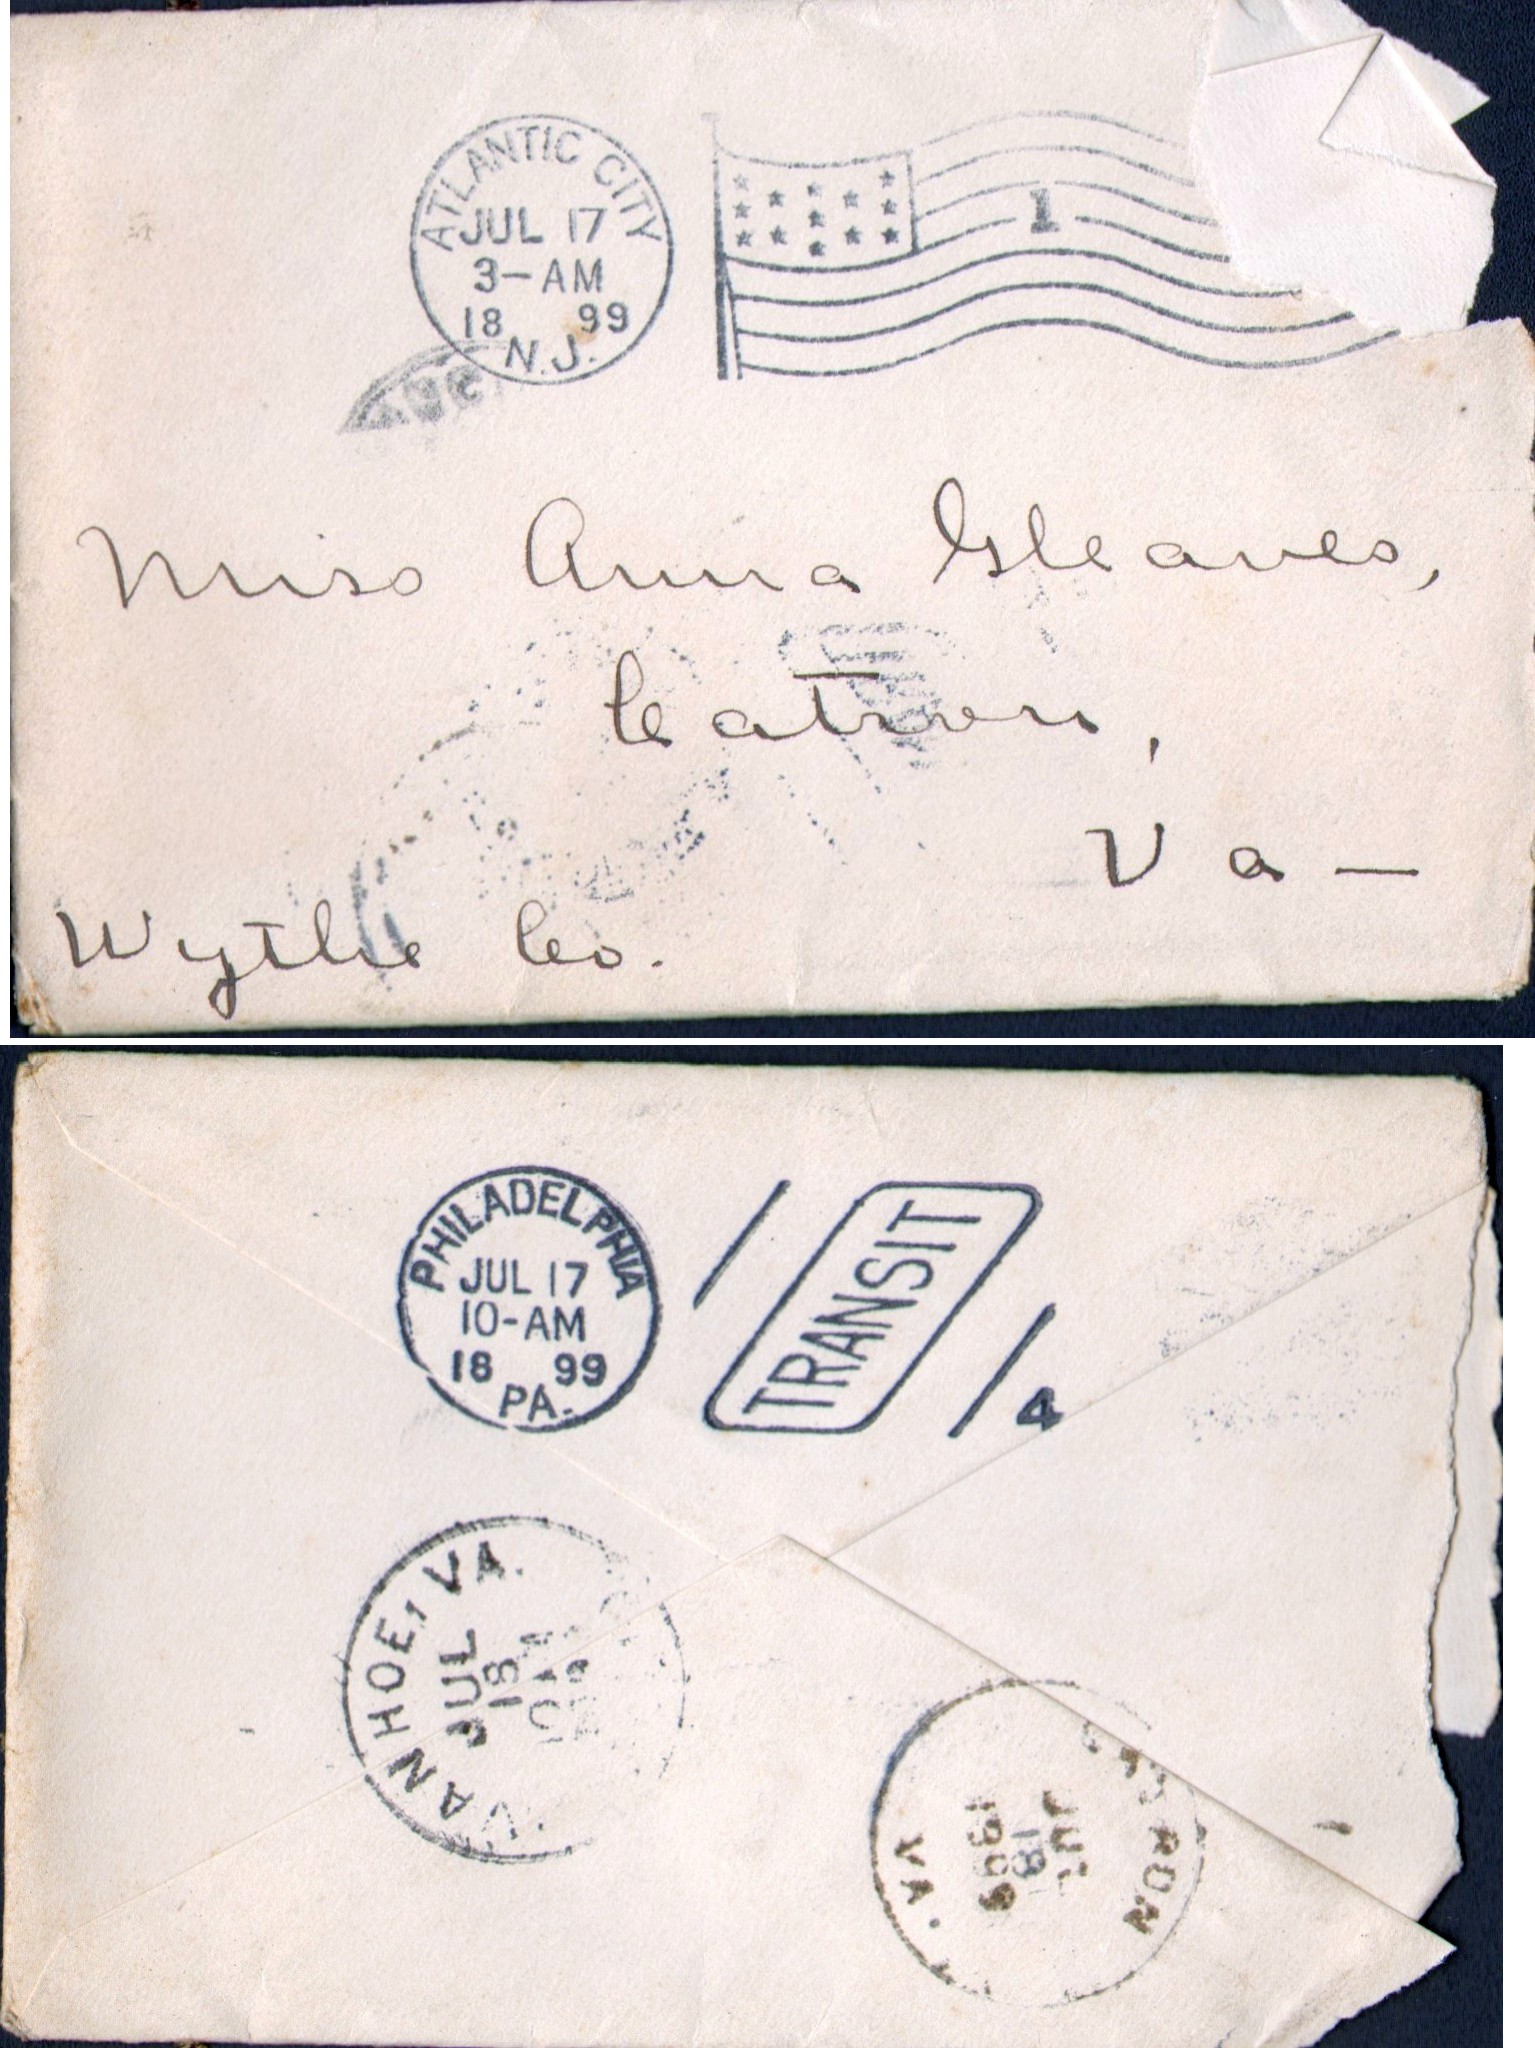 ATLANTIC CITY
JUL 17
3-AM
18 99
N.J.
1
Miss Anna Gleaves,
Catron,
Va —
Wythe Co.
PHILADELPHIA
JUL 17
10-AM
18 99
PA.
TRANSIT
4
IVANHOE, VA.
JUL
18
CATRON
VA.
JUL
18
1899